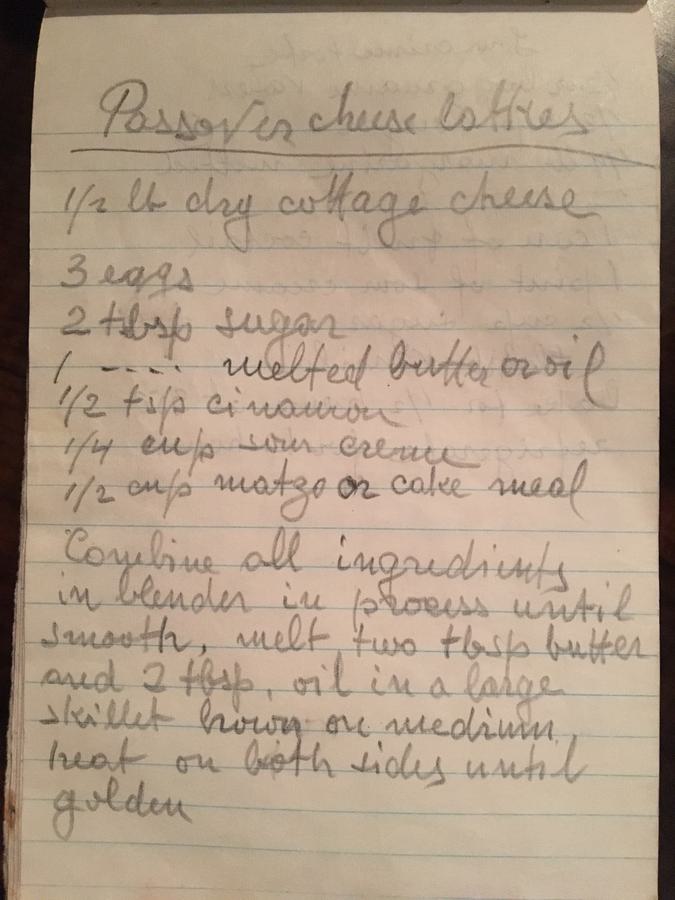 Passover cheese lattkes
1/2 lb dry cottage cheese
3 eggs
2 tbsp sugar
1 ---- melted butter or oil
1/2 tsp cinamon
1/4 cup sour creme
1/2 cup matzo or cake meal
Combine all ingredients
in blender in process until
smooth, melt two tbsp butter
and 2 tbsp, oil in a large
skillet brown on medium,
heat on both sides until
golden